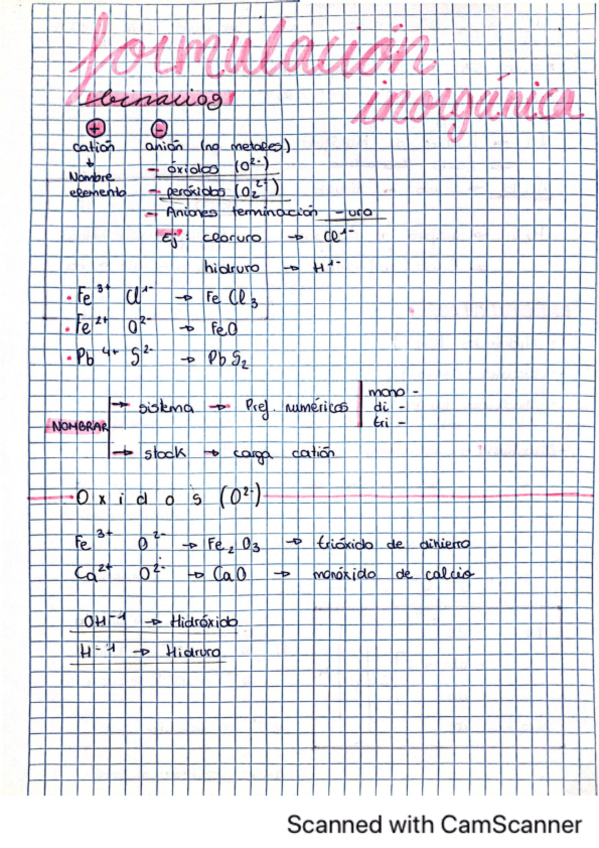 formulación
inorgánica
binarios
+ -
catión anión (no metales)
↓ - óxidos (O²⁻)
Nombre
elemento - peróxidos (O₂²⁻)
- Aniones terminación -uro
Ej: cloruro → Cl¹⁻
hidruro → H¹⁻
• Fe³⁺ Cl¹⁻ → FeCl₃
• Fe²⁺ O²⁻ → FeO
• Pb⁴⁺ S²⁻ → PbS₂
NOMBRAR
→ sistema → Pref. numéricos
mono -
di -
tri -
→ stock → carga catión
Oxidos (O²⁻)
Fe³⁺ O²⁻ → Fe₂O₃ → trióxido de dihierro
Ca²⁺ O²⁻ → CaO → monóxido de calcio
OH⁻¹ → Hidróxido
H⁻¹ → Hidruro
Scanned with CamScanner